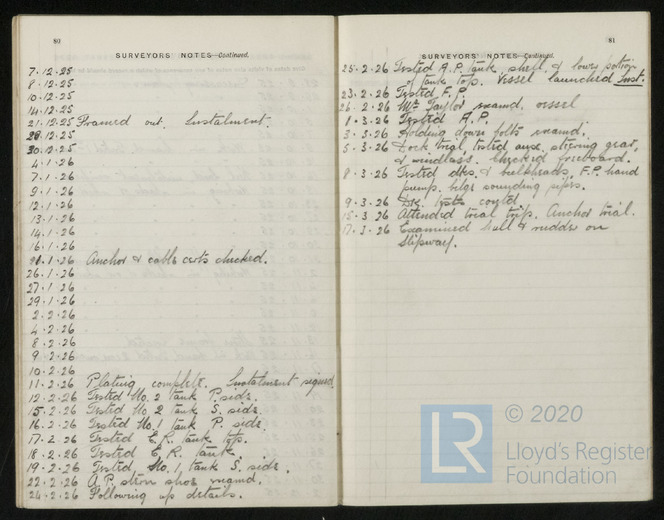 80
SURVEYORS' NOTES—Continued.
7.12.25
8.12.25
10.12.25
14.12.25
21.12.25 Framed out. Instalment.
28.12.25
30.12.25
4.1.26
7.1.26
9.1.26
12.1.26
13.1.26
14.1.26
16.1.26
21.1.26 Anchor & cable certs checked.
26.1.26
27.1.26
29.1.26
2.2.26
4.2.26
8.2.26
9.2.26
10.2.26
11.2.26 Plating complete. Instalment signed.
12.2.26 Tested No. 2 tank P. side.
15.2.26 Tested No 2 tank S. side.
16.2.26 Tested No. 1 tank P. side.
17.2.26 Tested E.R. tank top.
18.2.26 Tested E.R. tank.
19.2.26 Tested No. 1, tank S. side.
22.2.26 A.P. stern shoe examd.
24.2.26 Following up details.
81
SURVEYORS' NOTES—Continued.
25.2.26 Tested A.P. tank, shell, & lower portion
of tank tops. Vessel launched Inst.
23.2.26 Tested F.P.
26.2.26 Mr. Taylor examd. vessel
1.3.26 Tested A.P.
3.3.26 Holding down bolts examd.
5.3.26 Dock trial, tested aux. steering gear,
& windlass. Checked freeboard.
8.3.26 Tested dks. & bulkheads, F.P. hand
pump. bilge sounding pipes.
9.3.26 Dk. tests contd
15.3.26 Attended trial trip. Anchor trial.
17.3.26 Examined hull & rudder on
Slipway.
LR
© 2020
Lloyd's Register
Foundation